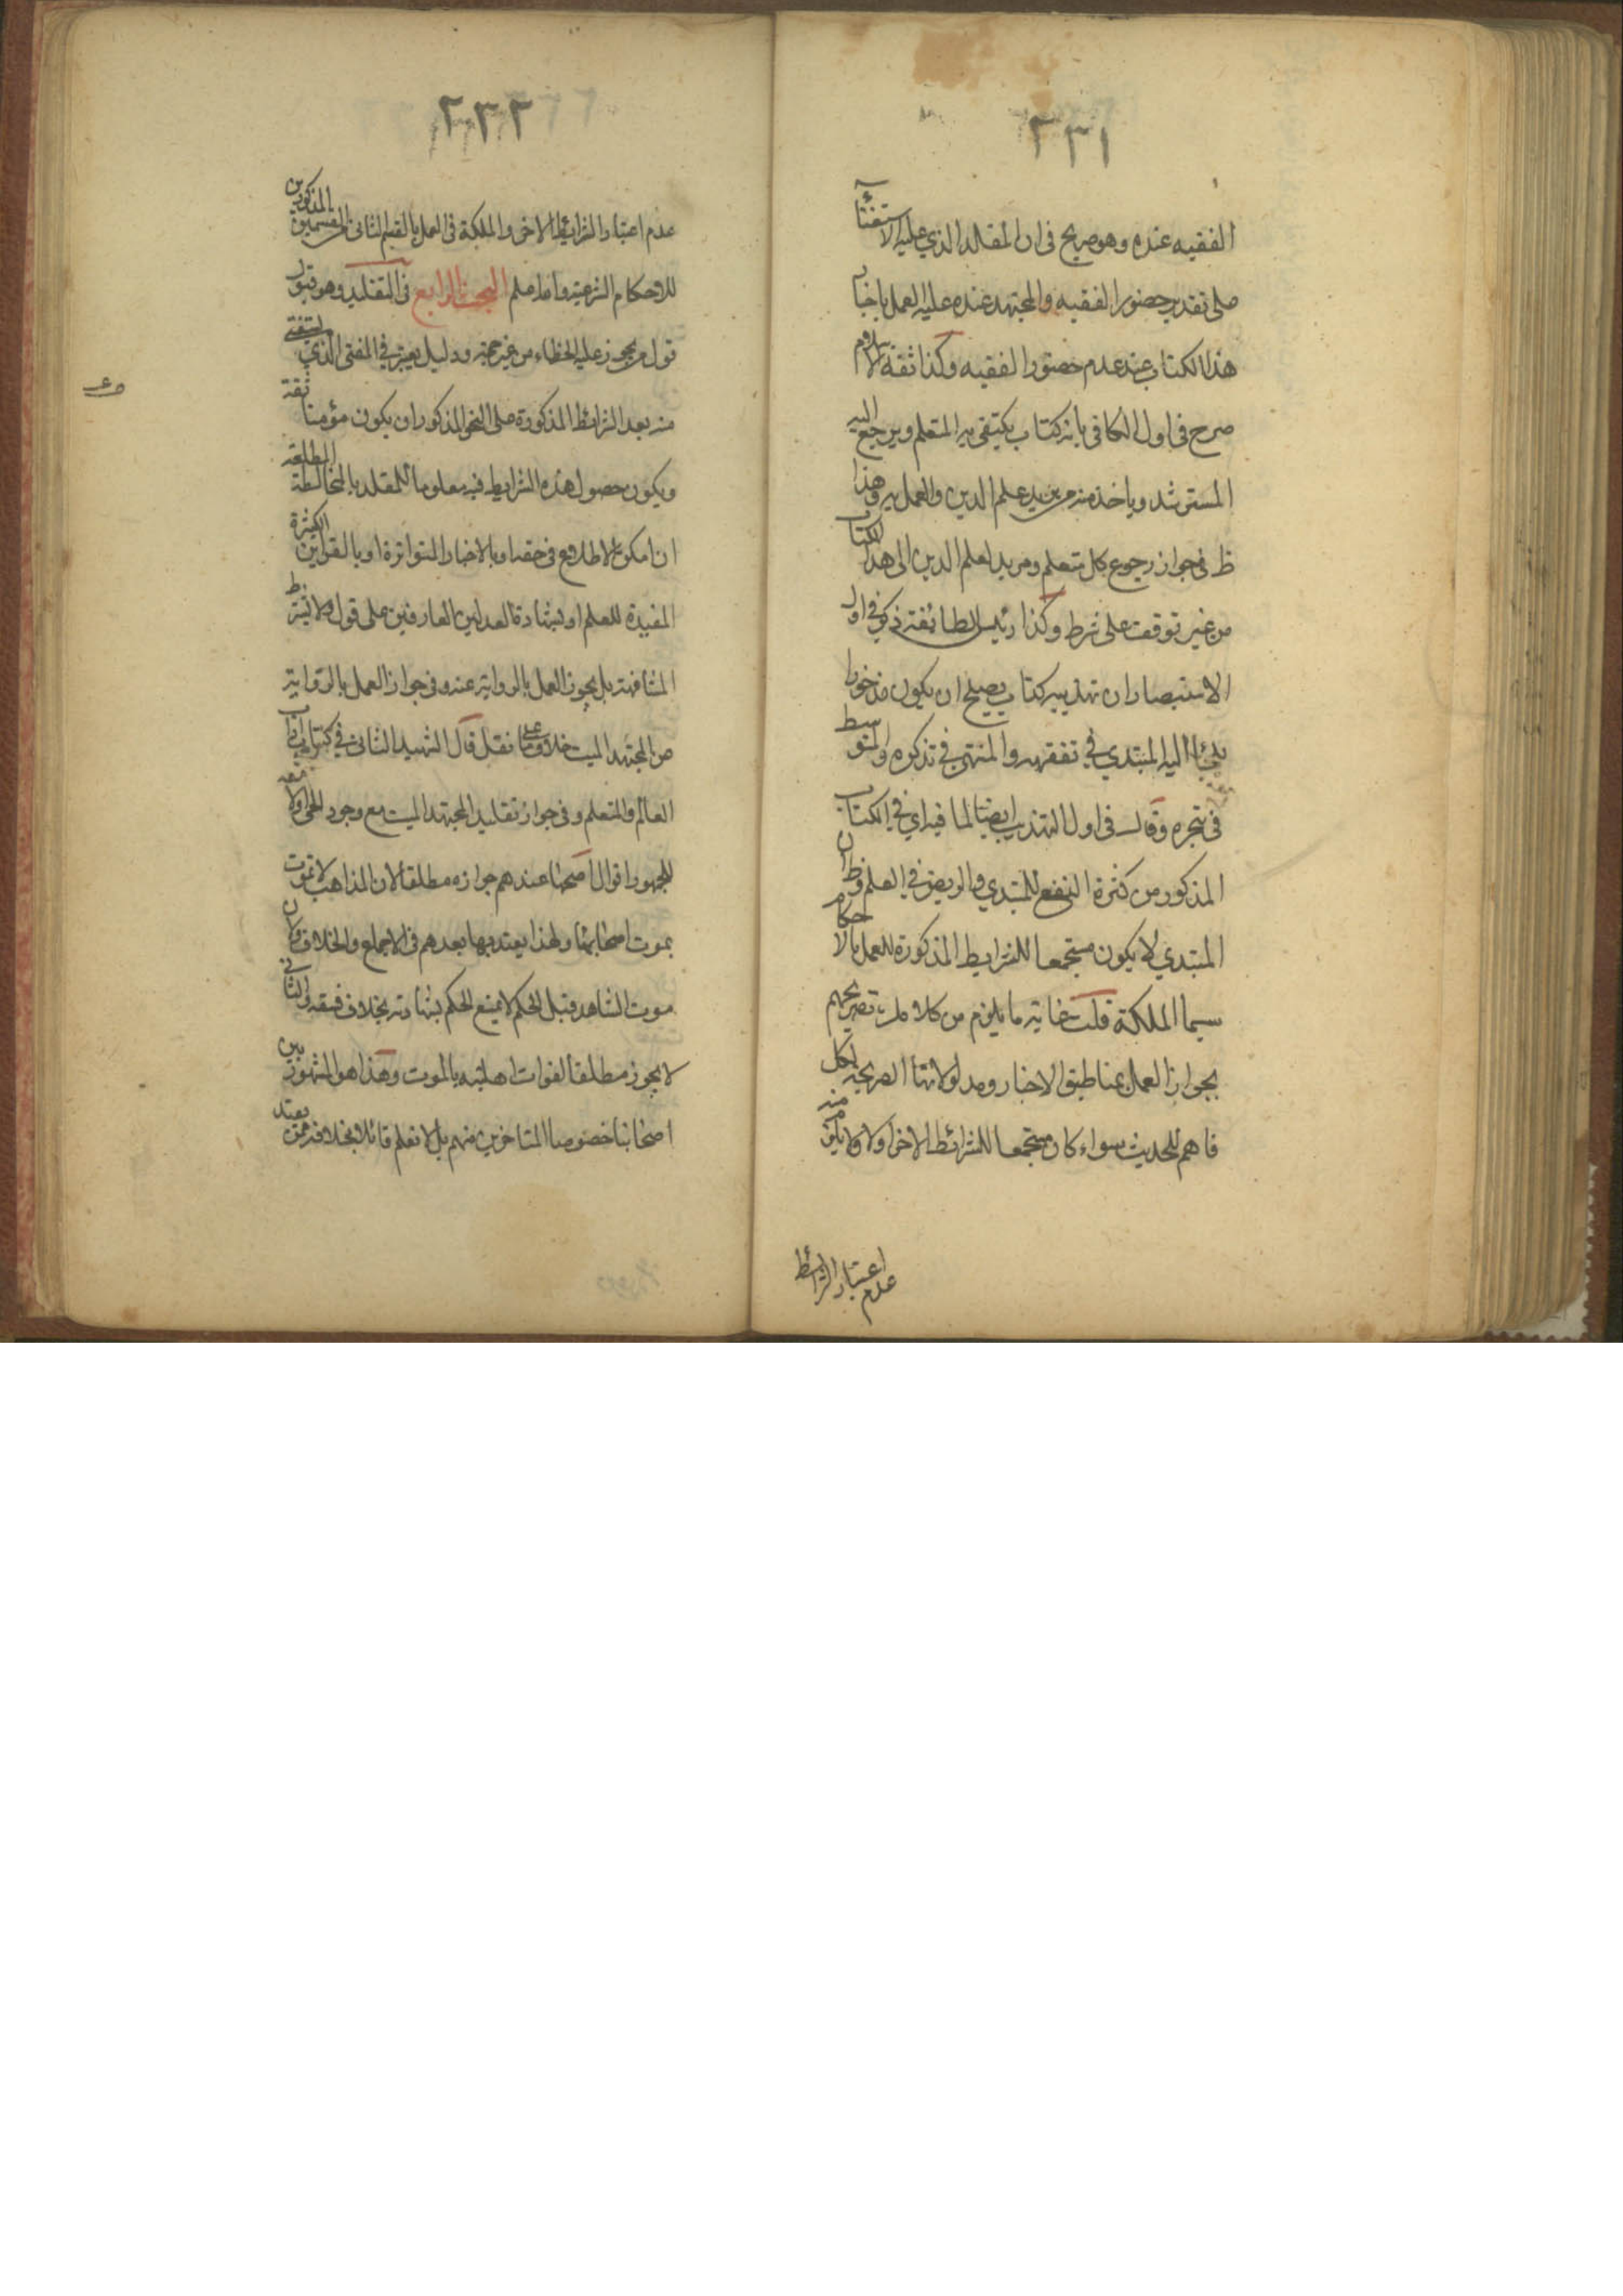 ٢٣١
الفقيه عنده وهو صريح في ان المقلد الذي عليه الاستفتاء
على تقدير حضور الفقيه والمجتهد عنده عليه العمل باخبار
هذا الكتاب عند عدم حضور الفقيه وكذا ثقة الاسلام
صرح في اول الكافي بانه كتاب يكتفي به المتعلم ويرجع اليه
المسترشد وياخذ منه من يريد علم الدين والعمل به وهذا
ظ في جواز رجوع كل متعلم ومريد لعلم الدين الى هذا الكتاب
من غير توقف على شرط وكذا رئيس الطائفة ذكر في اول
الاستبصار ان تهذيبه كتاب يصلح ان يكون مذخورا
يلجأ اليه المبتدي في تفقهه والمنتهي في تذكره والمتوسط
في تبحره وقال في اول التهذيب ايضا لما فيه اي في الكتاب
المذكور من كثرة النفع للمبتدي والريض في العلم وظ ان
المبتدي لا يكون مستجمعا للشرايط المذكورة للعمل بالاحكام
سيما الملكة قلت غاية ما يلزم من كلامك تصريحهم
بجواز العمل بمناطيق الاخبار ومدلولاتها الصريحة لكل
فاهم للحديث سواء كان مستجمعا للشرائط الاخر اولا ولا يلزم منه
عدم اعتبار الشرائط
٢٣٢
عدم اعتبار الشرائط الاخر والملكة في العمل بالقسم الثاني من القسمين المذكورين
للاحكام الشرعية واما علم البحث الرابع في التقليد وهو قبول
قول من يجوز عليه الخطاء من غير حجة ودليل يعتبر في المفتي الذي يستفتى
منه بعد الشرائط المذكورة على النحو المذكور ان يكون مؤمنا ثقة
ويكون حصول هذه الشرايط فيه معلوما للمقلد بالمخالطة المطلعة
ان امكن الاطلاع في حقه او بالاخبار المتواترة او بالقراين الكثيرة
المفيدة للعلم او بشهادة العدلين العارفين على قول ولا تشترط
المشافهة بل يجوز العمل بالرواية عنه وفي جواز العمل بالرواية
عن المجتهد الميت خلاف على ما نقل قال الشهيد الثاني في كتاب اداب
العالم والمتعلم وفي جواز تقليد المجتهد الميت مع وجود الحي اولا معه
للجمهور اقوال اصحها عندهم جوازه مطلقا لان المذاهب لا تموت
بموت اصحابها ولهذا يعتد بها بعدهم في الاجماع والخلاف ولان
موت الشاهد قبل الحكم لا يمنع الحكم بشهادته بخلاف فسقه والثاني
لا يجوز مطلقا لفوات اهليته بالموت وهذا هو المشهور بين
اصحابنا خصوصا المتاخرين منهم بل لا نعلم قائلا بخلافه ممن يعتد